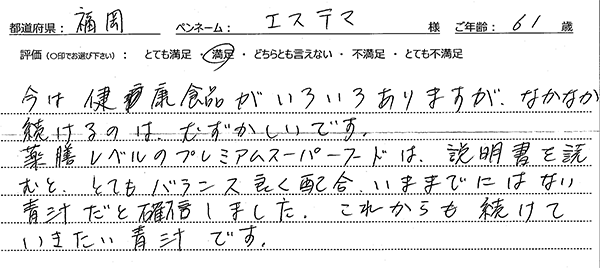 都道府県： 福岡 ペンネーム： エステマ 様 ご年齢： 61 歳
評価（○印でお選び下さい）： とても満足 ・ 満足 ・ どちらとも言えない ・ 不満足 ・ とても不満足
今は 健康食品がいろいろありますが、なかなか
続けるのは、むずかしいです。
薬膳レベルのプレミアムスーパーフードは、説明書を読
むと、とてもバランス良く配合、いままでにはない
青汁だと確信しました。これからも続けて
いきたい青汁です。